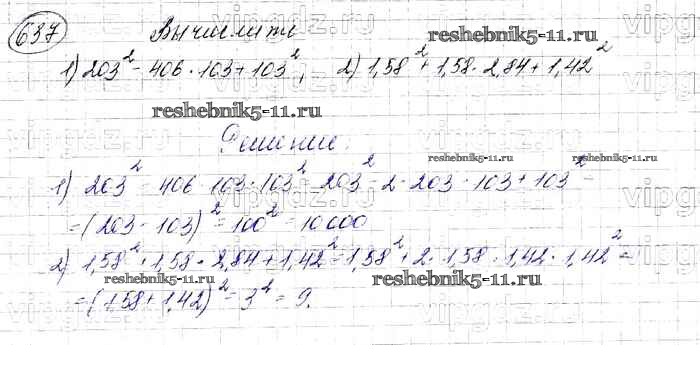 637 Вычислите
1) 203² - 406 · 103 + 103²; 2) 1,58² + 1,58 · 2,84 + 1,42²
reshebnik5-11.ru
reshebnik5-11.ru
Решение.
reshebnik5-11.ru reshebnik5-11.ru
1) 203² - 406 · 103 · 103² = 203² - 2 · 203 · 103 + 103² =
= (203 - 103)² = 100² = 10000
2) 1,58² + 1,58 · 2,84 + 1,42² = 1,58² + 2 · 1,58 · 1,42 · 1,42² =
reshebnik5-11.ru reshebnik5-11.ru
= (1,58 + 1,42)² = 3² = 9.